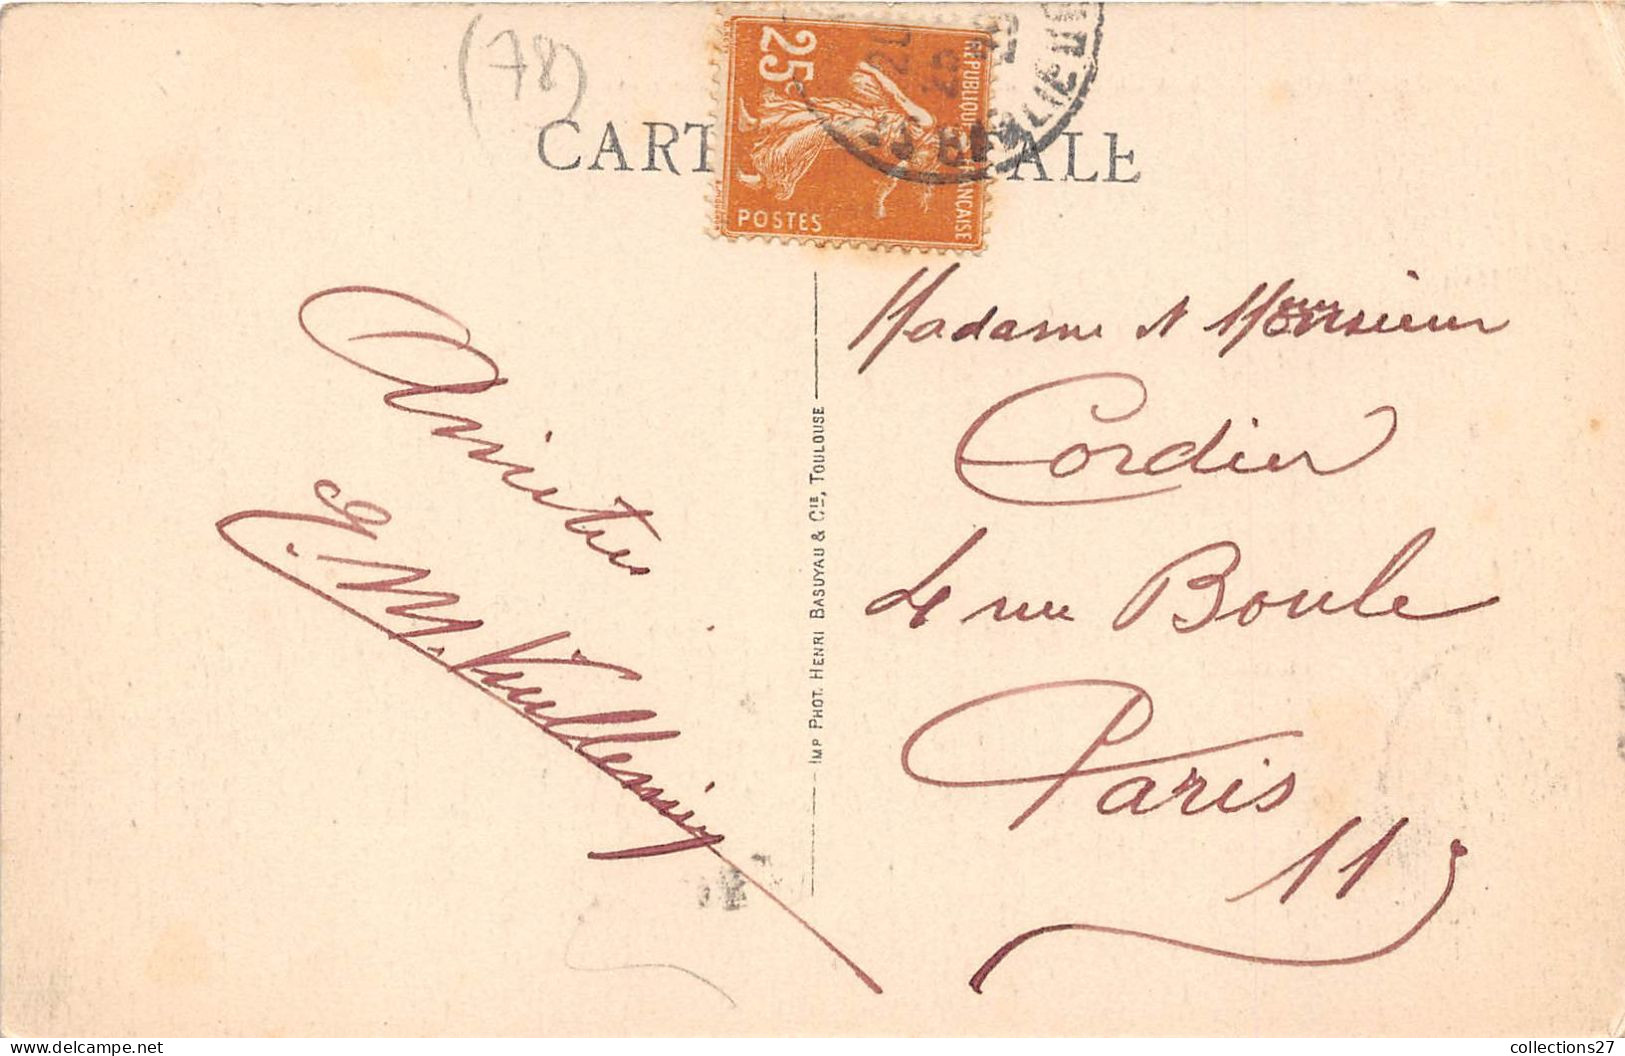 (78)
CART ALE
25c
REPUBLIQUE FRANCAISE
POSTES
Amitiés
G. M. Vuillemin
IMP PHOT. HENRI BASUYAU & CIE, TOULOUSE
Madame et Monsieur
Cordier
4 rue Boule
Paris
11e
collections27